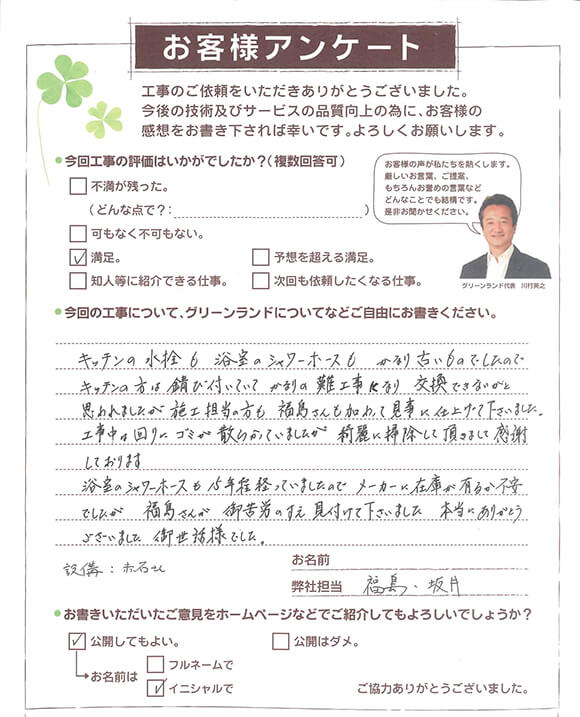 お客様アンケート
工事のご依頼をいただきありがとうございました。
今後の技術及びサービスの品質向上の為に、お客様の
感想をお書き下されば幸いです。よろしくお願いします。
●今回工事の評価はいかがでしたか？（複数回答可）
□不満が残った。
（どんな点で？：　）
□可もなく不可もない。
☑満足。　□予想を超える満足。
□知人等に紹介できる仕事。　□次回も依頼したくなる仕事。
お客様の声が私たちを熱くします。
厳しいお言葉、ご提案、
もちろんお誉めの言葉など
どんなことでも結構です。
是非お聞かせください。
グリーンランド代表　川村英之
●今回の工事について、グリーンランドについてなどご自由にお書きください。
キッチンの水栓も 浴室のシャワーホースも かなり古いものでしたので
キッチンの方は 錆び付いていて かなりの難工事になり 交換できないかと
思われましたが 施工担当の方も 福島さんも加わって見事に仕上げて下さいました。
工事中は回りに ゴミが散らかっていましたが 綺麗に掃除して頂きまして感謝
しております
浴室のシャワーホースも15年程経っていましたので メーカーに在庫が有るか不安
でしたが 福島さんが 御苦労のすえ見付けて下さいました 本当にありがとう
ございました 御世話様でした。
設備：赤石さん
お名前
弊社担当　福島・坂井
●お書きいただいたご意見をホームページなどでご紹介してもよろしいでしょうか？
☑公開してもよい。　□公開はダメ。
お名前は　□フルネームで
☑イニシャルで
ご協力ありがとうございました。